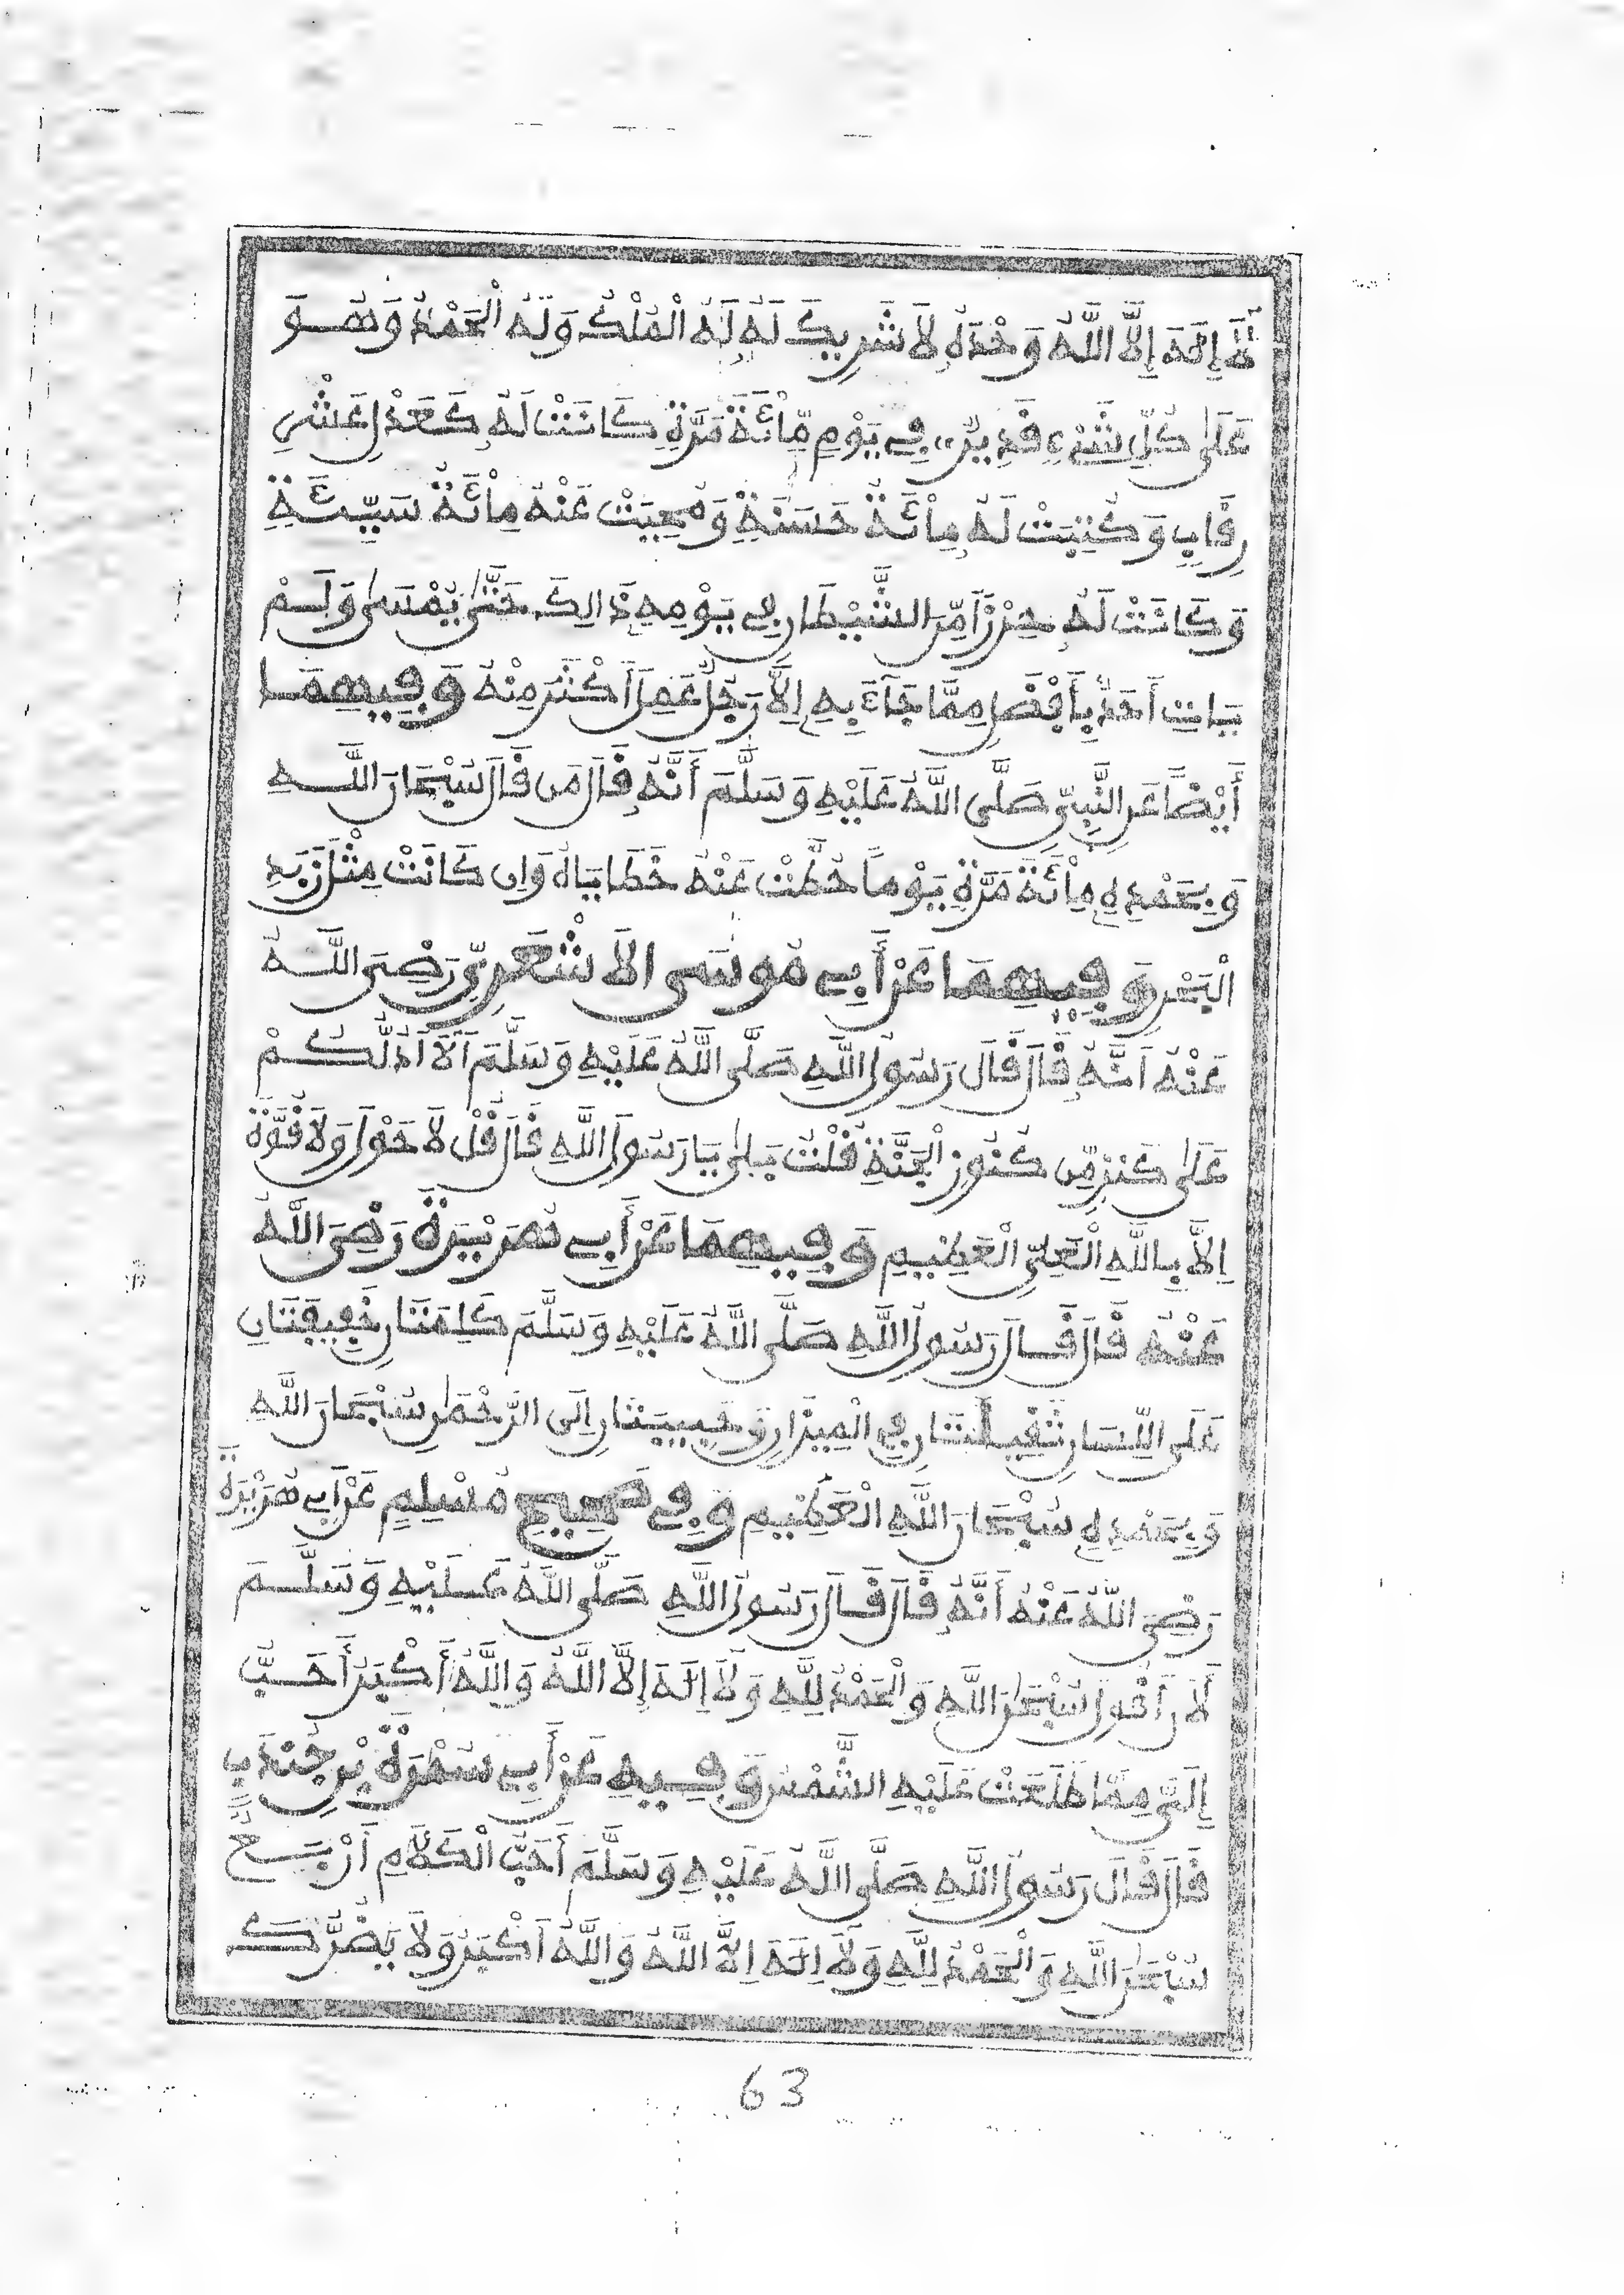 لَا إِلَهَ إِلَّا اللَّهُ وَحْدَهُ لَا شَرِيكَ لَهُ لَهُ الْمُلْكُ وَلَهُ الْحَمْدُ وَهُوَ
عَلَى كُلِّ شَيْءٍ قَدِيرٌ، فِي يَوْمٍ مِّائَةَ مَرَّةٍ كَانَتْ لَهُ كَعَدْلِ عَشْرِ
رِقَابٍ وَكُتِبَتْ لَهُ مِائَةُ حَسَنَةٍ وَمُحِيَتْ عَنْهُ مِائَةُ سَيِّئَةٍ
وَكَانَتْ لَهُ حِرْزًا مِّنَ الشَّيْطَانِ فِي يَوْمِهِ ذَالِكَ حَتَّى يُمْسَى وَلَمْ
يَاتِ أَحَدٌ بِأَفْضَلَ مِمَّا جَآءَ بِهِ إِلَّا رَجُلٌ عَمِلَ أَكْثَرَ مِنْهُ وَفِيهِمَا
أَيْضًا عَنِ النَّبِيِّ صَلَّى اللَّهُ عَلَيْهِ وَسَلَّمَ أَنَّهُ قَالَ مَن قَالَ سُبْحَانَ اللَّهِ
وَبِحَمْدِهِ مِائَةَ مَرَّةٍ يَوْماً حُطَّتْ عَنْهُ خَطَايَاهُ وَإِن كَانَتْ مِثْلَ زَبَدِ
الْبَحْرِ وَفِيهِمَا عَنْ أَبِي مُوسَى الَاشْعَرِيِّ رَضِيَ اللَّهُ
عَنْهُ أَنَّهُ قَالَ قَالَ رَسُولُ اللَّهِ صَلَّى اللَّهُ عَلَيْهِ وَسَلَّمَ أَلَا أَدُلُّكُمْ
عَلَى كَنزٍ مِّن كُنُوزِ الْجَنَّةِ قُلْتُ بَلَى يَا رَسُولَ اللَّهِ قَالَ قُلْ لَا حَوْلَ وَلَا قُوَّةَ
إِلَّا بِاللَّهِ الْعَلِيِّ الْعَظِيمِ وَفِيهِمَا عَنْ أَبِي هُرَيْرَةَ رَضِيَ اللَّهُ
عَنْهُ قَالَ قَالَ رَسُولُ اللَّهِ صَلَّى اللَّهُ عَلَيْهِ وَسَلَّمَ كَلِمَتَانِ خَفِيفَتَانِ
عَلَى اللِّسَانِ ثَقِيلَتَانِ فِي الْمِيزَانِ حَبِيبَتَانِ إِلَى الرَّحْمَنِ سُبْحَانَ اللَّهِ
وَبِحَمْدِهِ سُبْحَانَ اللَّهِ الْعَظِيمِ وَفِي صَحِيحِ مُسْلِمٍ عَنْ أَبِي هُرَيْرَةَ
رَضِيَ اللَّهُ عَنْهُ أَنَّهُ قَالَ قَالَ رَسُولُ اللَّهِ صَلَّى اللَّهُ عَلَيْهِ وَسَلَّمَ
لَأَنْ أَقُولَ سُبْحَانَ اللَّهِ وَالْحَمْدُ لِلَّهِ وَلَا إِلَهَ إِلَّا اللَّهُ وَاللَّهُ أَكْبَرُ أَحَبُّ
إِلَيَّ مِمَّا طَلَعَتْ عَلَيْهِ الشَّمْسُ وَفِيهِ عَنْ أَبِي سَمُرَةَ بْنِ جُنْدَبٍ
قَالَ قَالَ رَسُولُ اللَّهِ صَلَّى اللَّهُ عَلَيْهِ وَسَلَّمَ أَحَبُّ الْكَلَامِ أَرْبَعٌ
سُبْحَانَ اللَّهِ وَالْحَمْدُ لِلَّهِ وَلَا إِلَهَ إِلَّا اللَّهُ وَاللَّهُ أَكْبَرُ وَلَا يَضُرُّكَ
63